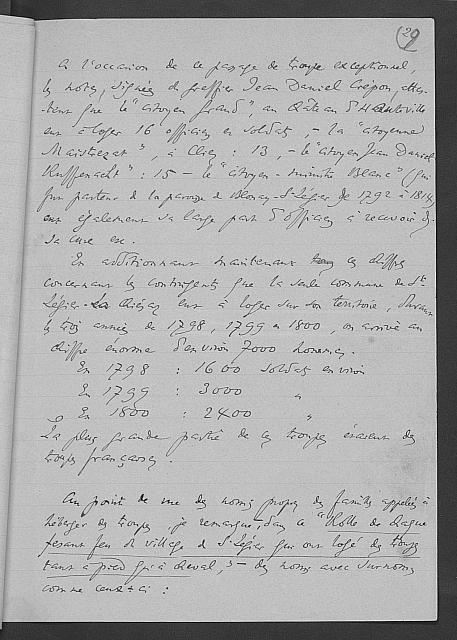 29
A l'occasion de ce passage de troupe exceptionnel,
les notes, signées du greffier Jean Daniel Crépon, attes-
-tent que le "citoyen Grand", au Château d'Hauteville
eut à loger 16 officiers et soldats, - la "citoyenne
Maistrezat", à Cliez : 13, - le "citoyen Jean Daniel
Ruffenacht" : 15 - le "citoyen-ministre Blanc" (qui
fut pasteur de la paroisse de Blonay-St-Légier de 1792 à 1814)
eut également sa large part d'officiers à recevoir ds
sa cure etc.
En additionnant maintenant les chiffres
concernant les contingents que la seule commune de St
Légier-La Chiésaz eut à loger sur son territoire, durant
les trois années de 1798, 1799 et 1800, on arrive au
chiffre énorme d'environ 7000 hommes.
En 1798 : 1600 soldats environ
En 1799 : 3000 "
En 1800 : 2400 "
La plus grande partie de ces troupes étaient des
troupes françaises.
Au point de vue des noms propres des familles appelées à
héberger des troupes, je remarque, dans ce "Rolle de chaque
fesant feu du village de St Légier qui ont logé des troupes
tant à pied qu'à cheval", - des noms avec surnoms
comme ceux-ci :